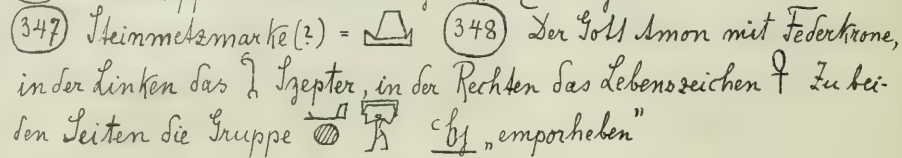 (347) Steinmetzmarke(?) = (348) Der Gott Amon mit Federkrone,
in der Linken das Szepter, in der Rechten das Lebenszeichen ☥ Zu bei-
den Seiten die Gruppe ꜥḫj „emporheben"